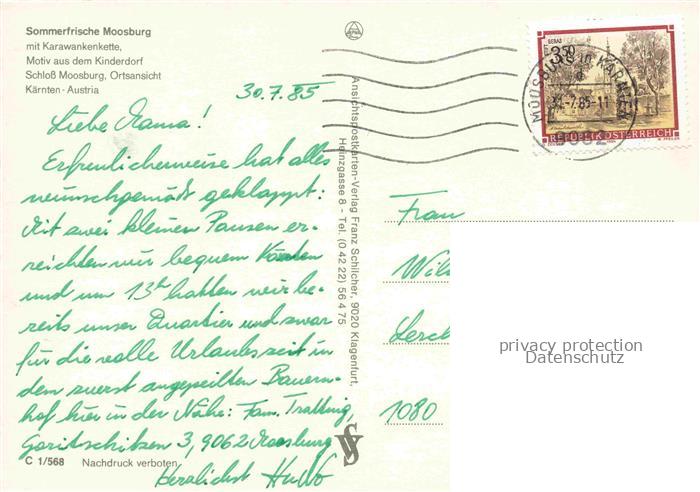 Sommerfrische Moosburg
mit Karawankenkette,
Motiv aus dem Kinderdorf
Schloß Moosburg, Ortsansicht
Kärnten - Austria
30.7.85
Liebe Mama!
Erfreulicherweise hat alles
wunschgemäß geklappt:
Mit zwei kleinen Pausen er-
reichten wir bequem Kärnten
und um 13h hatten wir be-
reits unser Quartier und zwar
für die volle Urlaubszeit in
dem zuerst angepeilten Bauern-
hof hier in der Nähe: Fam.
3, 9062 Moosburg
Herzlichst
C 1/568 Nachdruck verboten
Ansichtspostkarten-Verlag Franz Schilcher, 9020 Klagenfurt,
Heinzgasse 8 - Tel. (0 42 22) 56 4 75
GERAS
3.50
REPUBLIK ÖSTERREICH
MOOSBURG in KÄRNTEN
-7.85-11
9062
Frau
Wil
Lerch
1080
privacy protection
Datenschutz